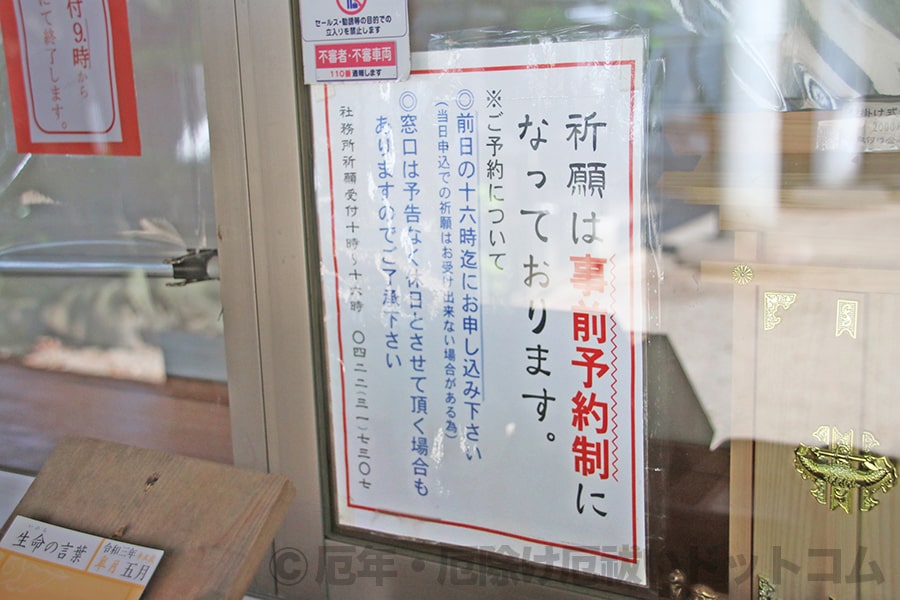 祈願は事前予約制に
なっております。
※ご予約について
◎前日の十六時迄にお申し込み下さい
（当日申込での祈願はお受け出来ない場合がある為）
◎窓口は予告なく休日とさせて頂く場合も
ありますのでご了承下さい
社務所祈願受付十時～十六時 〇四二二（三一）七三〇七
セールス・勧誘等の目的での
立入りを禁止します
不審者・不審車両
110番通報します
付9.時から
にて終了します。
生命の言葉
令和三年
五月
© 厄年・厄除け厄祓いドットコム